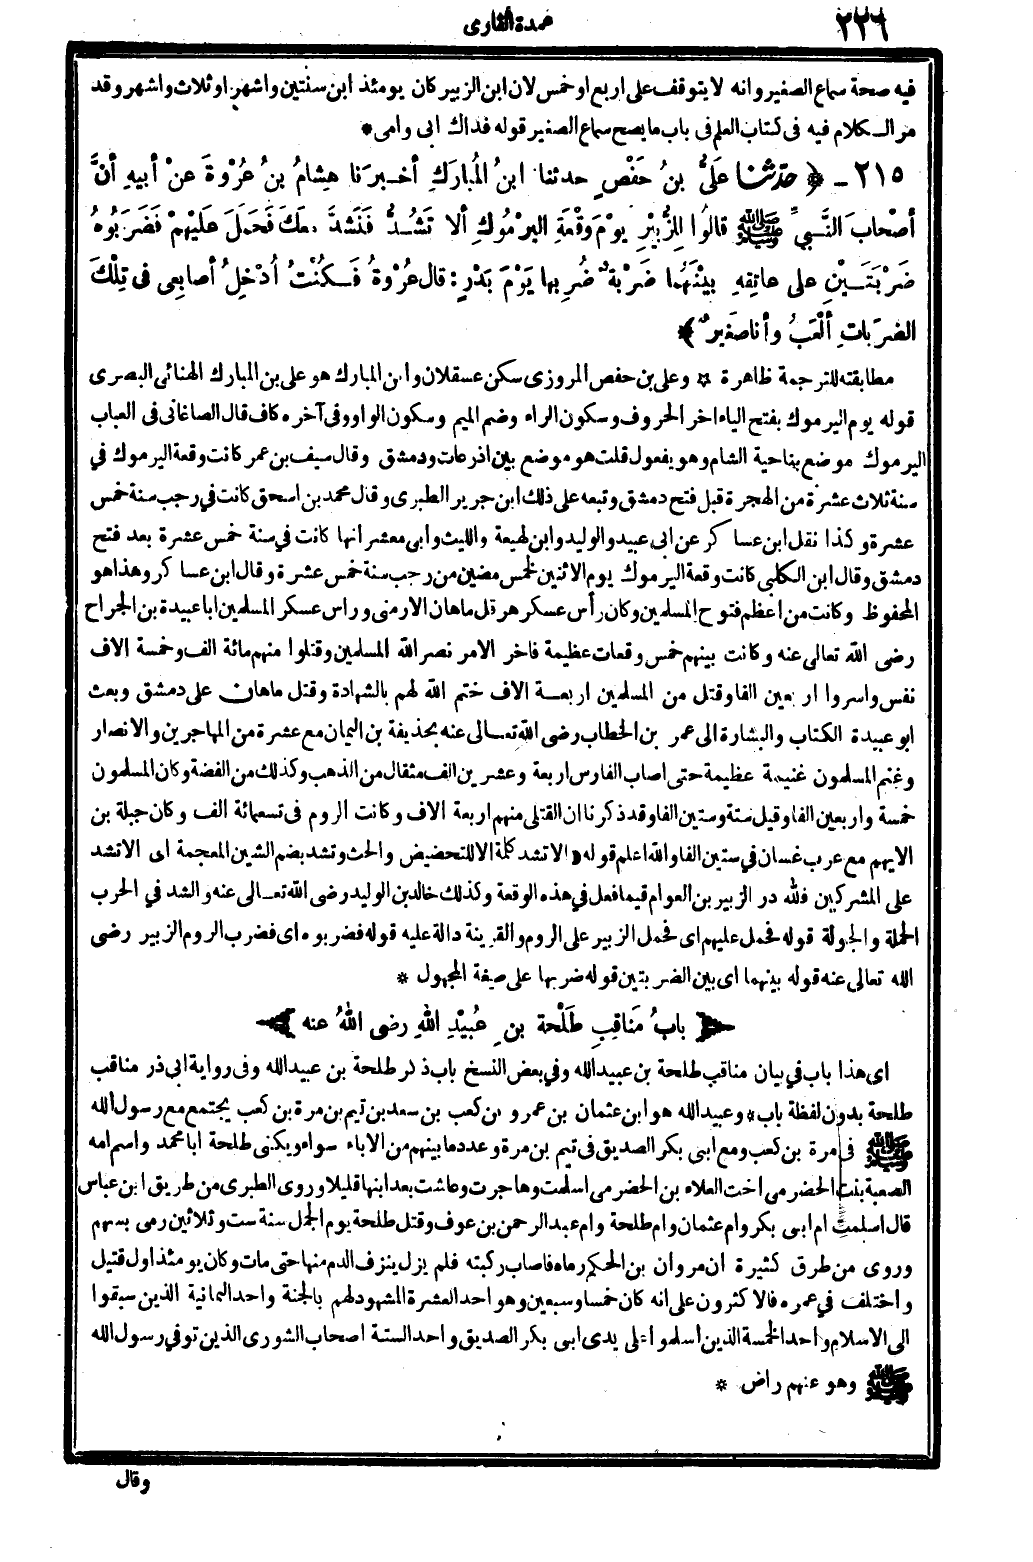 ٢٢٦
عمدة القارى
فيه صحة سماع الصغير وانه لايتوقف على اربع او خمس لان ابن الزبير كان يومئذ ابن سنتين واشهر او ثلاث واشهر وقد
مر الـكلام فيه فى كتاب العلم فى باب ما يصح سماع الصغير قوله فداك ابى وامى *
٢١٥ ـ ﴿ حدّثنا عَلَيُّ بنُ حَفْصٍ حدثنا ابنُ المُبارَكِ أخـبرَنا هِشامُ بنُ عُرْوةَ عنْ أبيهِ أنَّ
أصْحابَ النَّـبيِّ ﷺ قالُوا لِلزُّبَيْرِ يوْمَ وقْعَةِ اليرْمُوكِ ألا تَشُـدُّ فَنَشدَّ معَكَ فَحَمَلَ عَلَيْهِمْ فَضَرَبُوهُ
ضَرْبَتَـيْنِ على عاتِقِهِ بيْنَهُما ضَرْبةٌ ضُرِبها يَوْمَ بَدْرٍ : قال عُرْوةُ فَـكُنْتُ أُدْخِلُ أصابِعِى فى تِلْكَ
الضرَباتِ ألْعَبُ وأنا صَغيرٌ ﴾
مطابقته للترجمة ظاهرة * وعلى بن حفص المروزى سكن عسقلان وابن المبارك هو على بن المبارك الهنائى البصرى
قوله يوم اليرموك بفتح الياء اخر الحروف وسكون الراء وضم الميم وسكون الواو وفى آخره كاف قال الصاغانى فى العباب
اليرموك موضع بناحية الشام وهو يفعول قلت هو موضع بين اذرعات ودمشق وقال سيف بن عمر كانت وقعة اليرموك في
سنة ثلاث عشرة من الهجرة قبل فتح دمشق وتبعه على ذلك ابن جرير الطبرى وقال محمد بن اسحق كانت في رجب سنة خمس
عشرة وكذا نقل ابن عساكر عن ابى عبيد والوليد وابن لهيعة والليث وأبى معشر انها كانت في سنة خمس عشرة بعد فتح
دمشق وقال ابن الكلبى كانت وقعة اليرموك يوم الاثنين لخمس مضين من رجب سنة خمس عشرة وقال ابن عساكر وهذا هو
المحفوظ وكانت من اعظم فتوح المسلمين وكان رأس عسكر هرقل ماهان الارمنى وراس عسكر المسلمين ابا عبيدة بن الجراح
رضى الله تعالى عنه وكانت بينهم خمس وقعات عظيمة فاخر الامر نصر الله المسلمين وقتلوا منهم مائة الف وخمسة الاف
نفس واسروا اربعين الفا وقتل من المسلمين اربعـة الاف ختم الله لهم بالشهادة وقتل ماهان على دمشق وبعث
ابو عبيدة الكتاب والبشارة الى عمر بن الخطاب رضى الله تعـالى عنه بحذيفة بن اليمان مع عشرة من المهاجرين والانصار
وغنم المسلمون غنيمة عظيمة حتى اصاب الفارس اربعة وعشرين الف مثقال من الذهب وكذلك من الفضة وكان المسلمون
خمسة واربعين الفا وقيل ستة وستين الفا وقد ذكرنا ان القتلى منهم اربعة الاف وكانت الروم فى تسعمائة الف وكان جبلة بن
الايهم مع عرب غسان في ستين الفا والله اعلم قوله «الا تشد» كلمة الا للتحضيض والحث وتشد بضم الشين المعجمة اى الا تشد
على المشركين فلله در الزبير بن العوام فيما فعل في هذه الوقعة وكذلك خالد بن الوليد رضى الله تعـالى عنه والشد في الحرب
الحملة والجولة قوله فحمل عليهم اى فحمل الزبير على الروم والقرينة دالة عليه قوله فضربوه اى فضرب الروم الزبير رضى
الله تعالى عنه قوله بينهما اى بين الضربتين قوله ضربها على صيغة المجهول *
﴿ بابُ مَناقِبِ طَلْحةَ بن عُبَيْدِ اللهِ رضى اللهُ عنه ﴾
اى هذا باب في بيان مناقب طلحة بن عبيد الله وفي بعض النسخ باب ذكر طلحة بن عبيد الله وفى رواية ابى ذر مناقب
طلحة بدون لفظة باب * وعبيد الله هو ابن عثمان بن عمرو بن كعب بن سعد بن تيم بن مرة بن كعب يجتمع مع رسول الله
ﷺ فى مرة بن كعب ومع ابى بكر الصديق فى تيم بن مرة وعدد ما بينهم من الاباء سواء ويكنى طلحة ابا محمد واسم امه
الصعبة بنت الحضرمى اخت العلاء بن الحضرمى اسلمت وهاجرت وعاشت بعد ابنها قليلا وروى الطبرى من طريق ابن عباس
قال اسلمت ام ابى بكر وام عثمان وام طلحة وام عبد الرحمن بن عوف وقتل طلحة يوم الجمل سنة ست وثلاثين رمى بسهم
وروى من طرق كثيرة ان مروان بن الحكم رماه فاصاب ركبته فلم يزل ينزف الدم منها حتى مات وكان يومئذ اول قتيل
واختلف في عمره فالاكثرون على انه كان خمسا وسبعين وهو احد العشرة المشهود لهم بالجنة واحد الثمانية الذين سبقوا
الى الاسلام واحد الخمسة الذين اسلموا على يدى ابى بكر الصديق واحد الستة اصحاب الشورى الذين توفي رسول الله
ﷺ وهو عنهم راض *
وقال